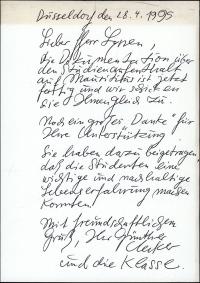 Düsseldorf den 28.4.1995
Lieber Herr
die Dokumentation über
den Studienaufenthalt
auf Mauritius ist jetzt
fertig und wir schicken
sie Ihnen gleich zu.
Noch ein großes „Danke“ für
Ihre Unterstützung.
Sie haben dazu beigetragen
daß die Studenten eine
wichtige und nachhaltige
Lebenserfahrung machen
konnten!
Mit freundschaftlichem
Gruß, Ihr Günther
Uecker
und die Klasse.